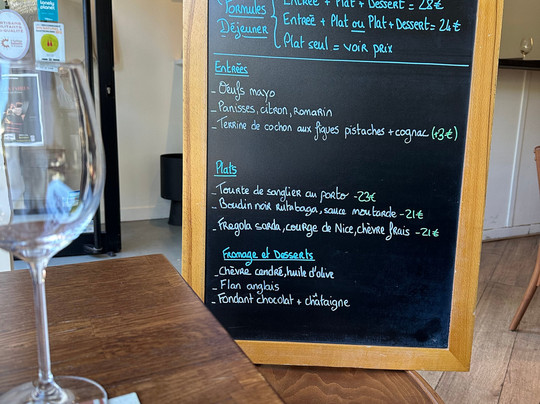 lonely planet
Formules Entrée + Plat + Dessert = 28€
Déjeuner Entrée + Plat ou Plat + Dessert = 24€
Plat seul = voir prix
Entrées
_ Oeufs mayo
_ Panisses, citron, romarin
_ Terrine de cochon aux figues pistaches + cognac (+3€)
Plats
_ Tourte de sanglier au porto -23€
_ Boudin noir rutabaga, sauce moutarde -21€
_ Fregola sarda, courge de Nice, chèvre frais -21€
Fromage et Desserts
_ Chèvre cendré, huile d'olive
_ Flan anglais
_ Fondant chocolat + châtaigne